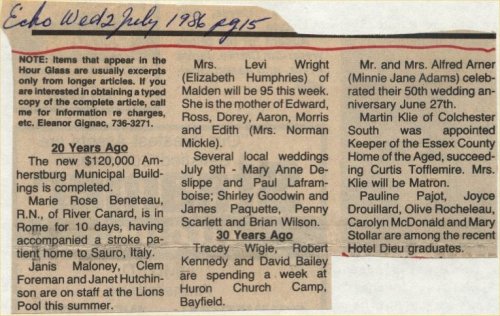 Echo Wed 2 July 1986 pg 15
NOTE: Items that appear in the
Hour Glass are usually excerpts
only from longer articles. If you
are interested in obtaining a typed
copy of the complete article, call
me for information re charges,
etc. Eleanor Gignac, 736-3271.
20 Years Ago
The new $120,000 Am-
herstburg Municipal Build-
ings is completed.
Marie Rose Beneteau,
R.N., of River Canard, is in
Rome for 10 days, having
accompanied a stroke pa-
tient home to Sauro, Italy.
Janis Maloney, Clem
Foreman and Janet Hutchin-
son are on staff at the Lions
Pool this summer.
Mrs. Levi Wright
(Elizabeth Humphries) of
Malden will be 95 this week.
She is the mother of Edward,
Ross, Dorey, Aaron, Morris
and Edith (Mrs. Norman
Mickle).
Several local weddings
July 9th - Mary Anne De-
slippe and Paul Lafram-
boise; Shirley Goodwin and
James Paquette, Penny
Scarlett and Brian Wilson.
30 Years Ago
Tracey Wigle, Robert
Kennedy and David Bailey
are spending a week at
Huron Church Camp,
Bayfield.
Mr. and Mrs. Alfred Arner
(Minnie Jane Adams) celeb-
rated their 50th wedding an-
niversary June 27th.
Martin Klie of Colchester
South was appointed
Keeper of the Essex County
Home of the Aged, succeed-
ing Curtis Tofflemire. Mrs.
Klie will be Matron.
Pauline Pajot, Joyce
Drouillard, Olive Rocheleau,
Carolyn McDonald and Mary
Stollar are among the recent
Hotel Dieu graduates.